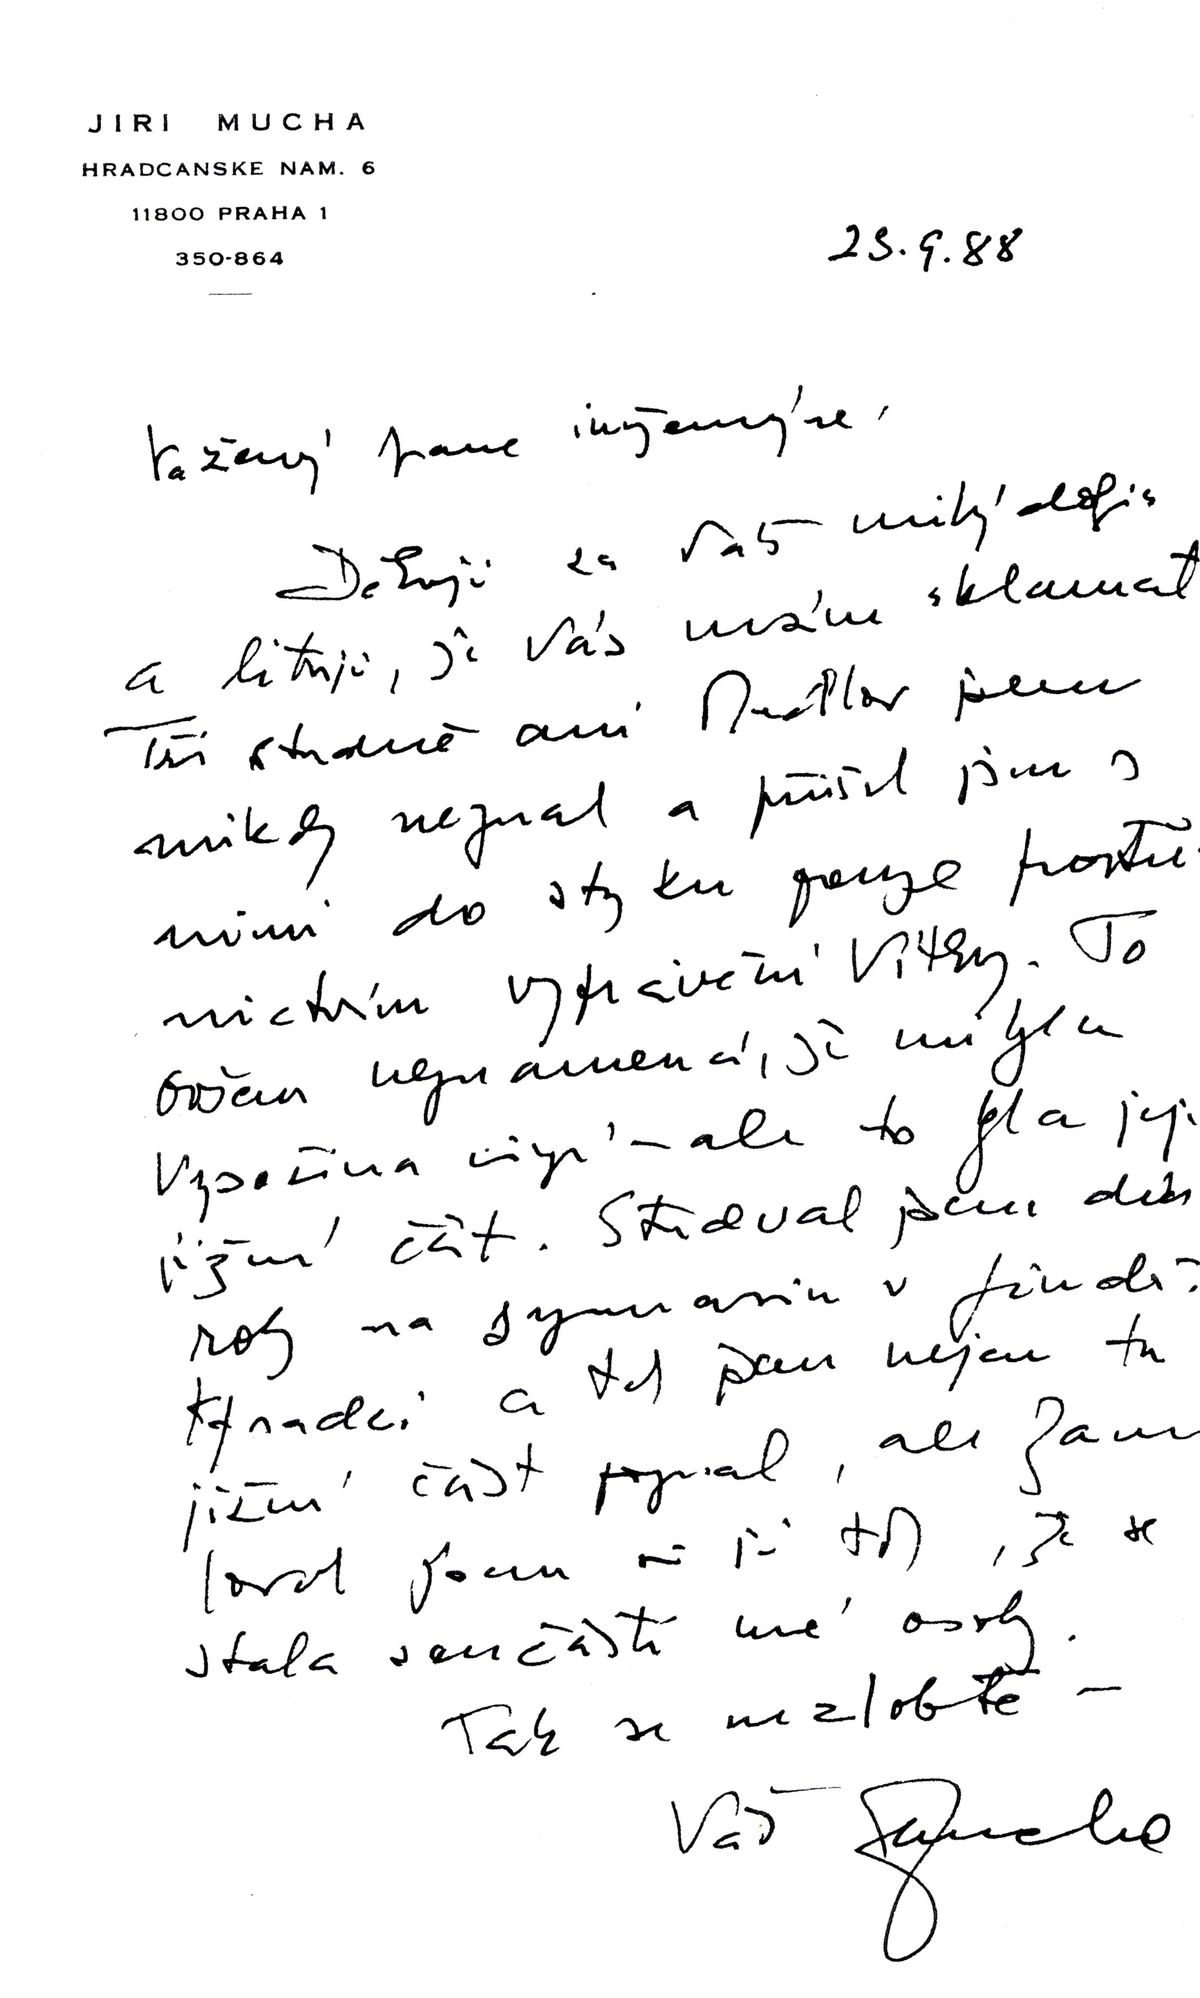 JIRI MUCHA
HRADCANSKE NAM. 6
11800 PRAHA 1
350-864
23.9.88
Vážený pane inženýre,
Děkuji za Váš milý dopis
a lituji, že Vás musím sklamat
Tři studně ani Medlov jsem
nikdy neznal a přišel jsem s
nimi do styku pouze prostřed-
nictvím vyprávění Vítky. To
ovšem neznamená, že mi byla
Vysočina cizí – ale to byla její
jižní část. Studoval jsem dva
roky na gymnasiu v Jindř.
Hradci a tak jsem nejen tu
jižní část poznal, ale zami
loval jsem si ji tak, že se
stala součástí mé osoby.
Tak se nezlobte –
Váš JMucha